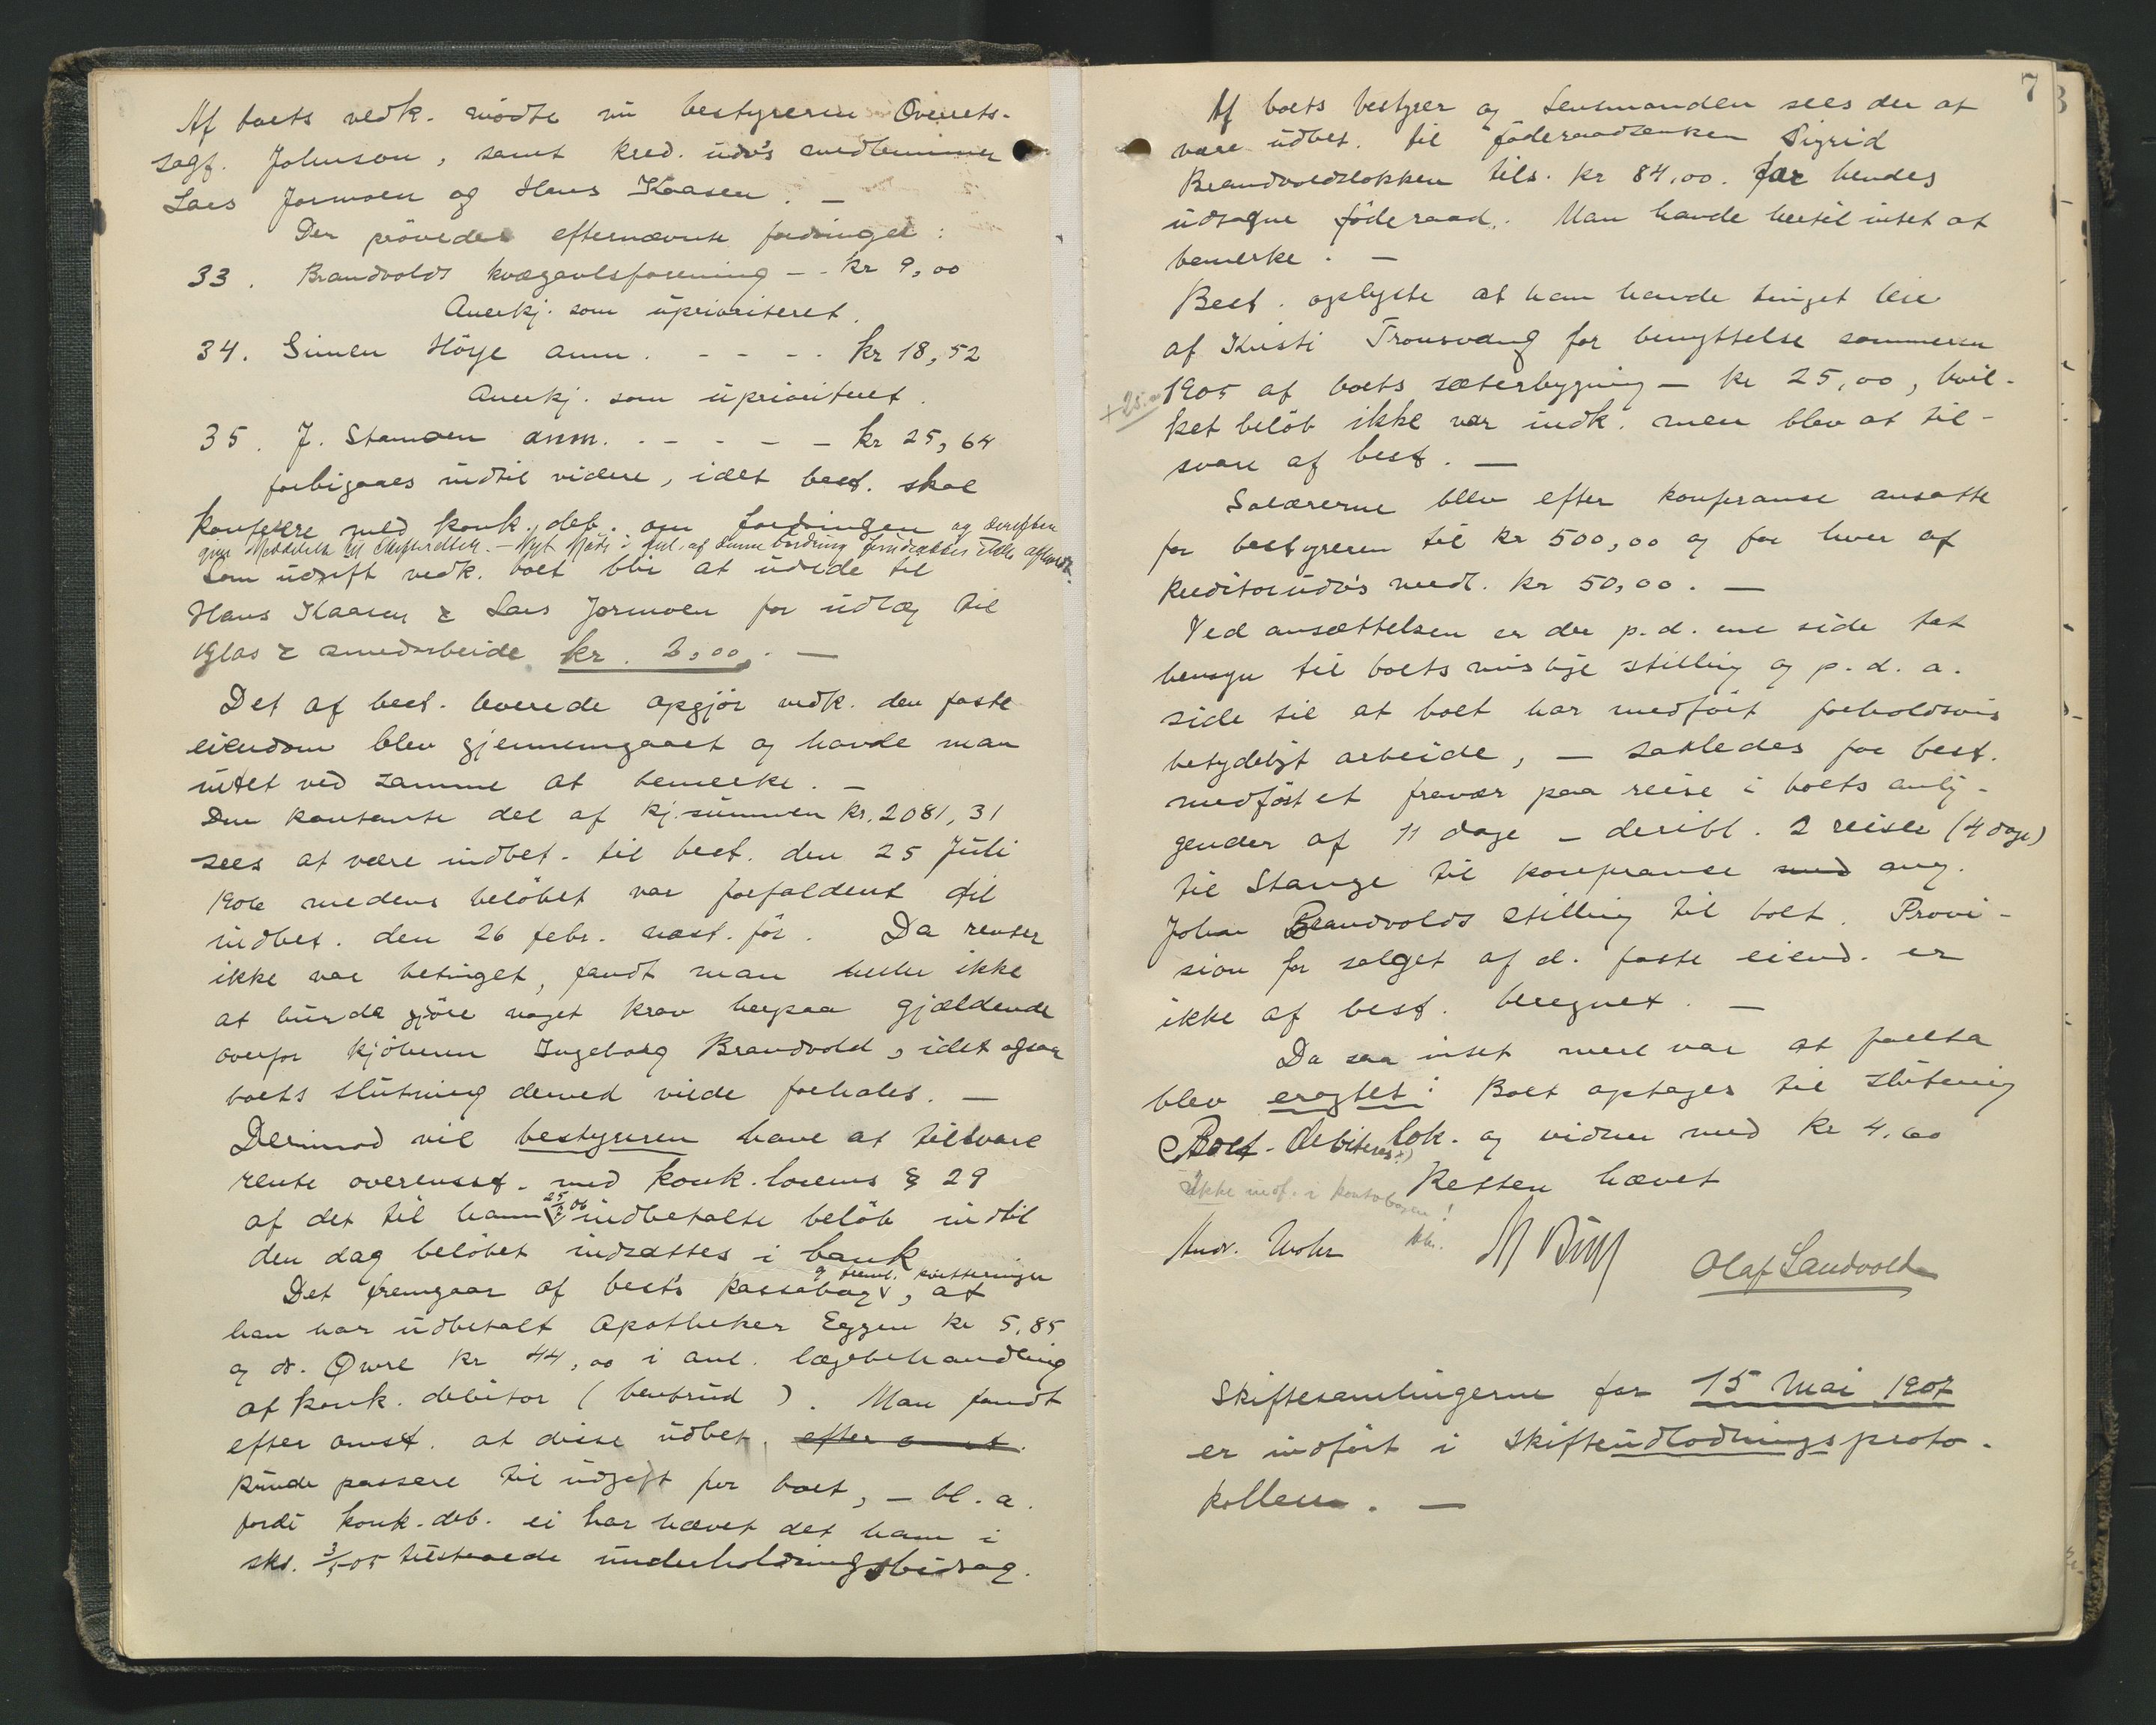 Af boets vedk. mødte nu bestyreren Overrets-
sagf. Johnson, samt kred. udv's medlemmer
Lars Jormoen og Hans Kaasen. —
Der prøvedes efternævnte fordringer:
33. Brandvolds kvægavlsforening - - kr 9,00
Anerkj. som uprioriteret.
34. Simen Höye anm. - - - - kr 18,52
Anerkj. som uprioriteret.
35. J. Stamoen anm. - - - - - kr 25,64
forbigaaes indtil videre, idet best. skal
konferere med konk. deb. om fordringen og derefter
give Meddelelse til Skifteretten. - Nyt Möde i anl. af denne fordring forudsættes ikke afholdt.
Som udgift vedk. boet blir at udrede til
Hans Kaasen & Lars Jormoen for udlæg til
Glas & smedarbeide kr. 2,00. —
Det af best. leverede opgjör vedk. den faste
eiendom blev gjennemgaaet og havde man
intet ved samme at bemerke. —
Den kontante del af kj.summen kr. 2081,31
sees at være indbet. til best. den 25 Juli
1906 medens beløbet var forfaldent til
indbet. den 26 febr. næst. för. Da renter
ikke var betinget, fandt man heller ikke
at burde gjöre noget krav herpaa gjældende
overfor kjöberen Ingeborg Brandvold, idet ogsaa
boets slutning derved vilde forhales. —
Derimod vil bestyreren have at tilsvare
rente overensst. med konk. lovens § 29
af det til ham 25/7 06 indbetalte beløb indtil
den dag beløbet indsættes i bank
Det fremgaar af best's kassebog, at
og freml. kvitteringer
han har udbetalt Apotheker Eggen kr 5,85
og dr. Øwre kr 44,00 i anl. lægebehandling
af konk. debitor (benbrud). Man fandt
efter omst. at disse udbet. efter omst.
kunde passere til udgift for boet, - bl. a.
fordi konk. deb. ei har hævet det ham i
sks. 3/5 05 tilstaaede underholdningsbidrag.
7
Af boets bestyrer og Lensmanden sees der at
være udbet. til föderaadsenken Sigrid
Brandvoldsløkken tils. kr 84,00. for hendes
udsagne föderaad. Man havde hertil intet at
bemerke. —
Best. oplyste at han havde tinget leie
af Kristi Tronsvang for benyttelse sommeren
1905 af boets sæterbygning - kr 25,00, hvil-
+ 25.00
ket beløb ikke var indk. men blev at til-
svare af best. —
Salærerne blev efter konferanse ansatte
for bestyreren til kr 500,00 og for hver af
kreditorudv's medl. kr 50,00. —
Ved ansættelsen er der p. d. ene side tat
hensyn til boets mislige stilling og p. d. a.
side til at boet har medført forholdsvis
betydeligt arbeide, — saaledes for best.
medført et fravær paa reise i boets anlig-
gender af 11 dage - deribl. 2 reiser (4 dage)
til Stange til konferanse med ang.
Johan Brandvolds stilling til boet. Provi-
sion for salget af d. faste eiend. er
ikke af best. beregnet. —
Da saa intet mere var at foreta
blev eragtet: Boet optages til slutning
Boet debiteres x) lok. og vidner med kr 4.00
Retten hævet
Ikke indf. i kontobogen!
Andr. Mohr M Bing Olaf Sandvold
Skiftesamlingerne for 15 Mai 1907
er indført i skifteudlodningsproto-
kollen. —